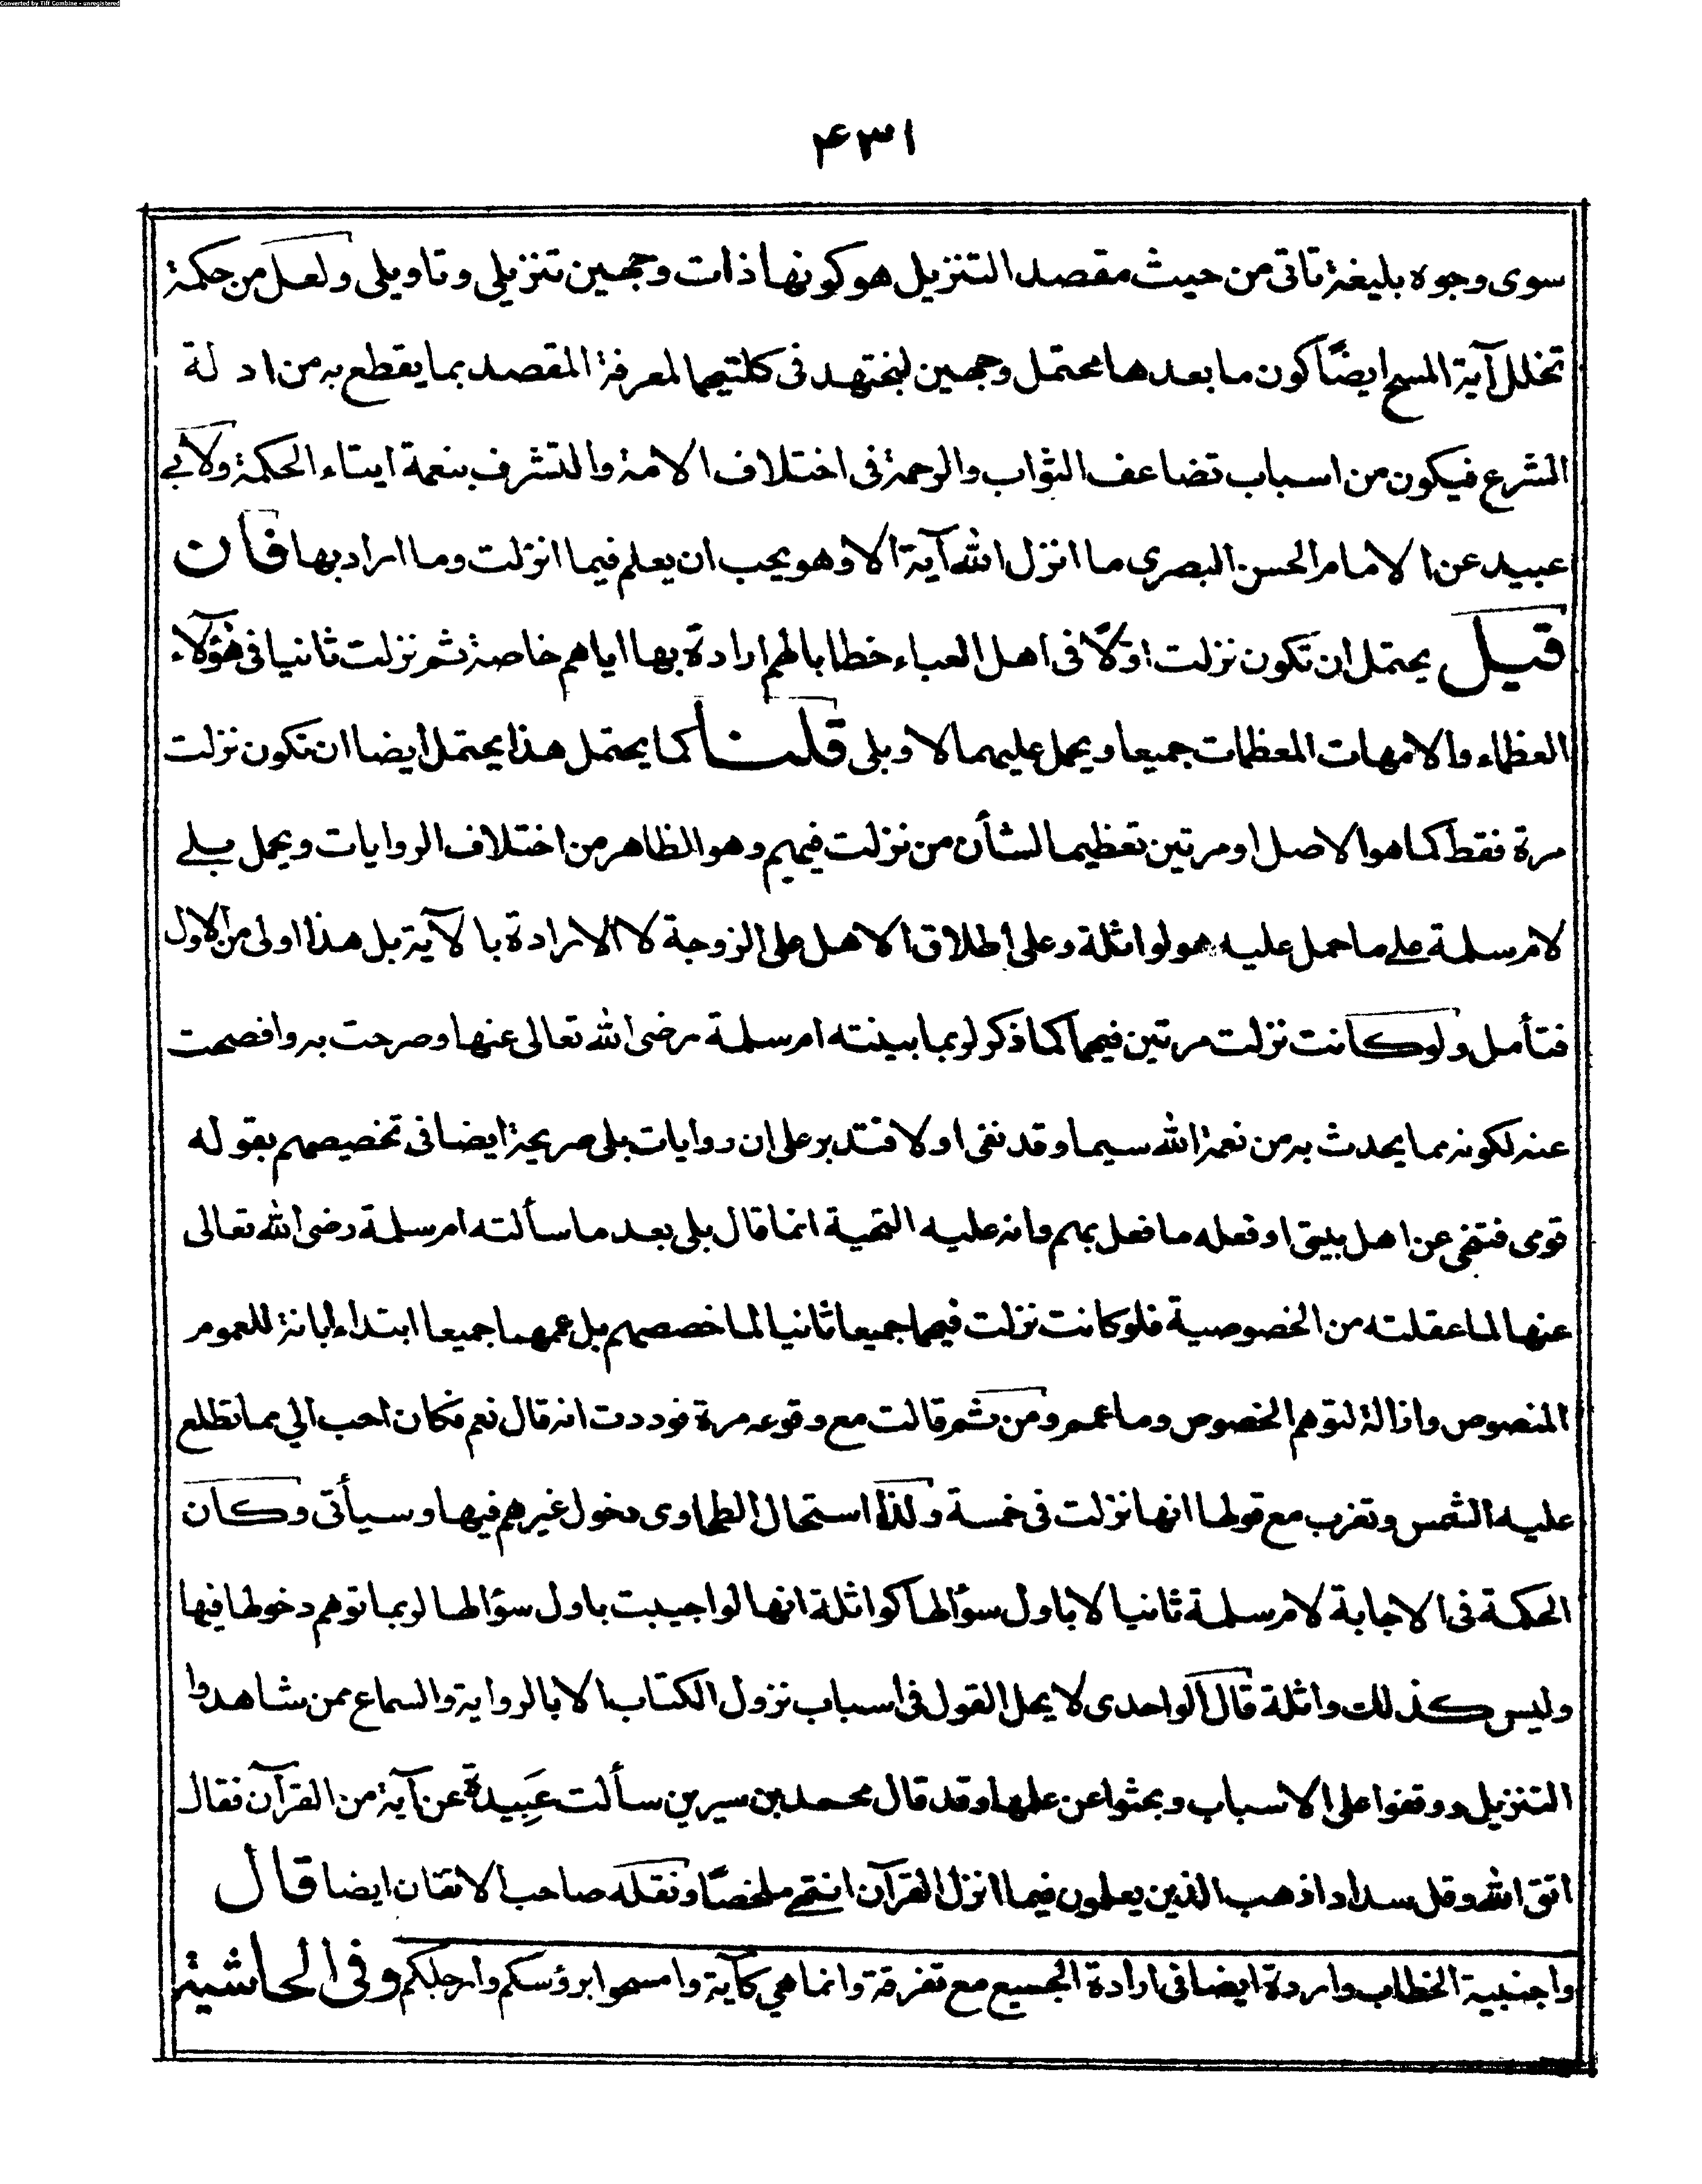 Converted by Tiff Combine - unregistered
۴۳۱
سوى وجوه بليغة تاتى من حيث مقصد التنزيل هو كونها ذات وجهين تنزيلى وتاويلى ولعل من حكمة
تخلل آية المسح ايضًا كون ما بعدها محتمل وجهين لنجتهد فى كلتيهما لمعرفة المقصد بما يقطع به من ادلة
الشرع فيكون من اسباب تضاعف الثواب والرحمة فى اختلاف الامة والتشرف بنعمة ايتاء الحكمة ولابى
عبيد عن الامام الحسن البصرى ما انزل الله آية الا وهو يحب ان يعلم فيما انزلت وما اراد بها فان
قيل يحتمل ان تكون نزلت اوّلًا فى اهل العباء خطابا لهم ارادة بها اياهم خاصة ثم نزلت ثانيا فى هؤلاء
العظماء والامهات المعظمات جميعا ويحمل عليهما لا وبلى قلنا كما يحتمل هذا يحتمل ايضا ان تكون نزلت
مرة فقط كما هو الاصل او مرتين تعظيما لشأن من نزلت فيهم وهو الظاهر من اختلاف الروايات ويحمل بلے
لام سلمة علے ما حمل عليه هو لواثلة وعلى اطلاق الاهل على الزوجة لا الارادة بالآية بل هذا اولى من الاول
فتأمل ولو كانت نزلت مرتين فيهما كما ذكر لربما بينته ام سلمة رضى الله تعالى عنها وصرحت به وافصحت
عنه لكونه مما يحدث به من نعمة الله سيما وقد نفى اولا فتدبر على ان روايات بلى صريحة ايضا فى تخصيصهم بقوله
قومى فتنحى عن اهل بيتى او فعله ما فعل بهم وانه عليه التحية انما قال بلى بعد ما سألته ام سلمة رضى الله تعالى
عنها لما عقلته من الخصوصية فلو كانت نزلت فيهما جميعا ثانيا لما خصصهم بل عمهما جميعا ابتداء ابانة للعموم
المنصوص وازالة لتوهم الخصوص وما عمم ومن ثم قالت مع وقوعه مرة فوددت انه قال نعم فكان احب الي مما تطلع
عليه الشمس وتغرب مع قولها انها نزلت فى خمسة ولذا استحال الطحاوى دخول غيرهم فيها وسيأتى وكان
الحكمة فى الاجابة لام سلمة ثانيا لا باول سؤالها كواثلة انها لو اجيبت باول سؤالها لربما توهم دخولها فيها
وليس كذلك واثلة قال الواحدى لا يحل القول فى اسباب نزول الكتاب الا بالرواية والسماع ممن شاهدوا
التنزيل ووقفوا على الاسباب وبحثوا عن علمها وقد قال محمد بن سيرين سألت عَبِيدة عن آية من القرآن فقال
اتق الله وقل سدادا ذهب الذين يعلمون فيما انزل القرآن انتهے ملخصًا ونقله صاحب الاتقان ايضا قال
واجنبية الخطاب واردة ايضا فى ارادة الجميع مع تفرقة وانما هي كآية وامسحوا برؤسكم وارجلكم وفى الحاشية